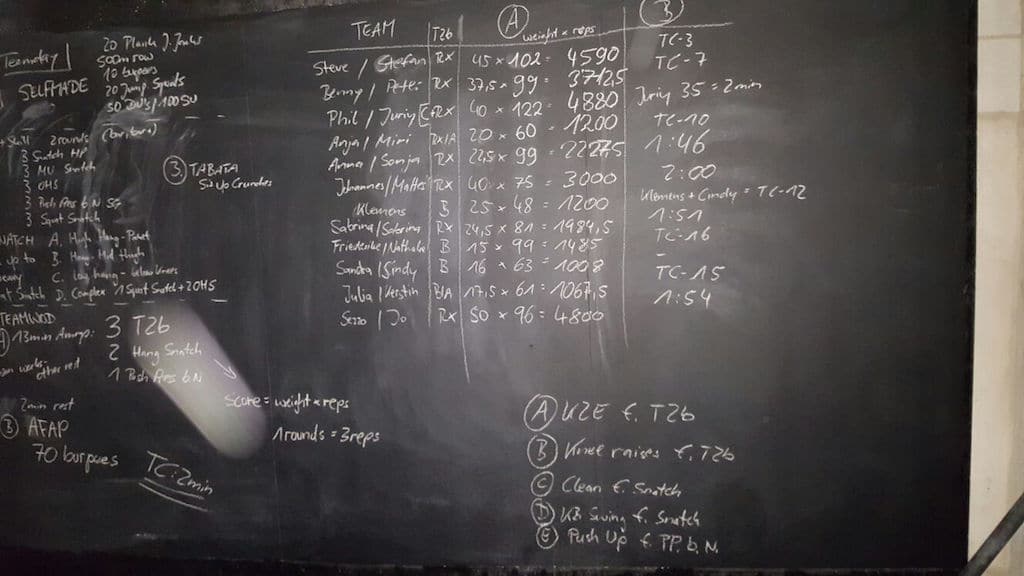 Teamday
20 Plank J. Jacks
500m row
10 burpees
20 Jump Squats
50 DUs / 100 SU
SELFMADE
(burpees)
Skill 2 rounds
3 MU Snatch
3 OHS
3 Push Press b. N
3 Squat Snatch
③ TABATA
Sit Up Crunches
NATCH A.
up to B.
C.
Snatch D. Complex 1 Squat Snatch + 2 OHS
TEAMWOD
A) 13min Amrap: 3 T2b
2 Hang Snatch
1 Push Press b.N
one works
other rest
score = weight x reps
1 rounds = 3 reps
2min rest
B AFAP
70 burpees
TC: 2min
TEAM T2b A weight x reps B
Steve / Stefan Rx 45 x 102 = 4590 TC-3
Benny / Peter Rx 37,5 x 99 = 3712,5 TC-7
Phil / Juriy Rx 40 x 122 = 4880 Juriy 35 = 2min
Anja / Mimi Rx/A 20 x 60 = 1200 TC-10
Anna / Sonja Rx 22,5 x 99 = 2227,5 1:46
Johannes / Matthes Rx 40 x 75 = 3000 2:00
Klemens B 25 x 48 = 1200 Klemens + Cindy = TC-12
Sabrina / Sabrina Rx 24,5 x 81 = 1984,5 1:51
Friederike / Nathalie B 15 x 99 = 1485 TC-16
Sandra / Cindy B 16 x 63 = 1008 -
Julia / Kerstin B/A 17,5 x 61 = 1067,5 TC-15
Sezzo / Jo Rx 50 x 96 = 4800 1:54
A K2E f. T2b
B Knee raises f. T2b
C Clean f. Snatch
D KB Swing f. Snatch
E Push Up f. PP. b. N.